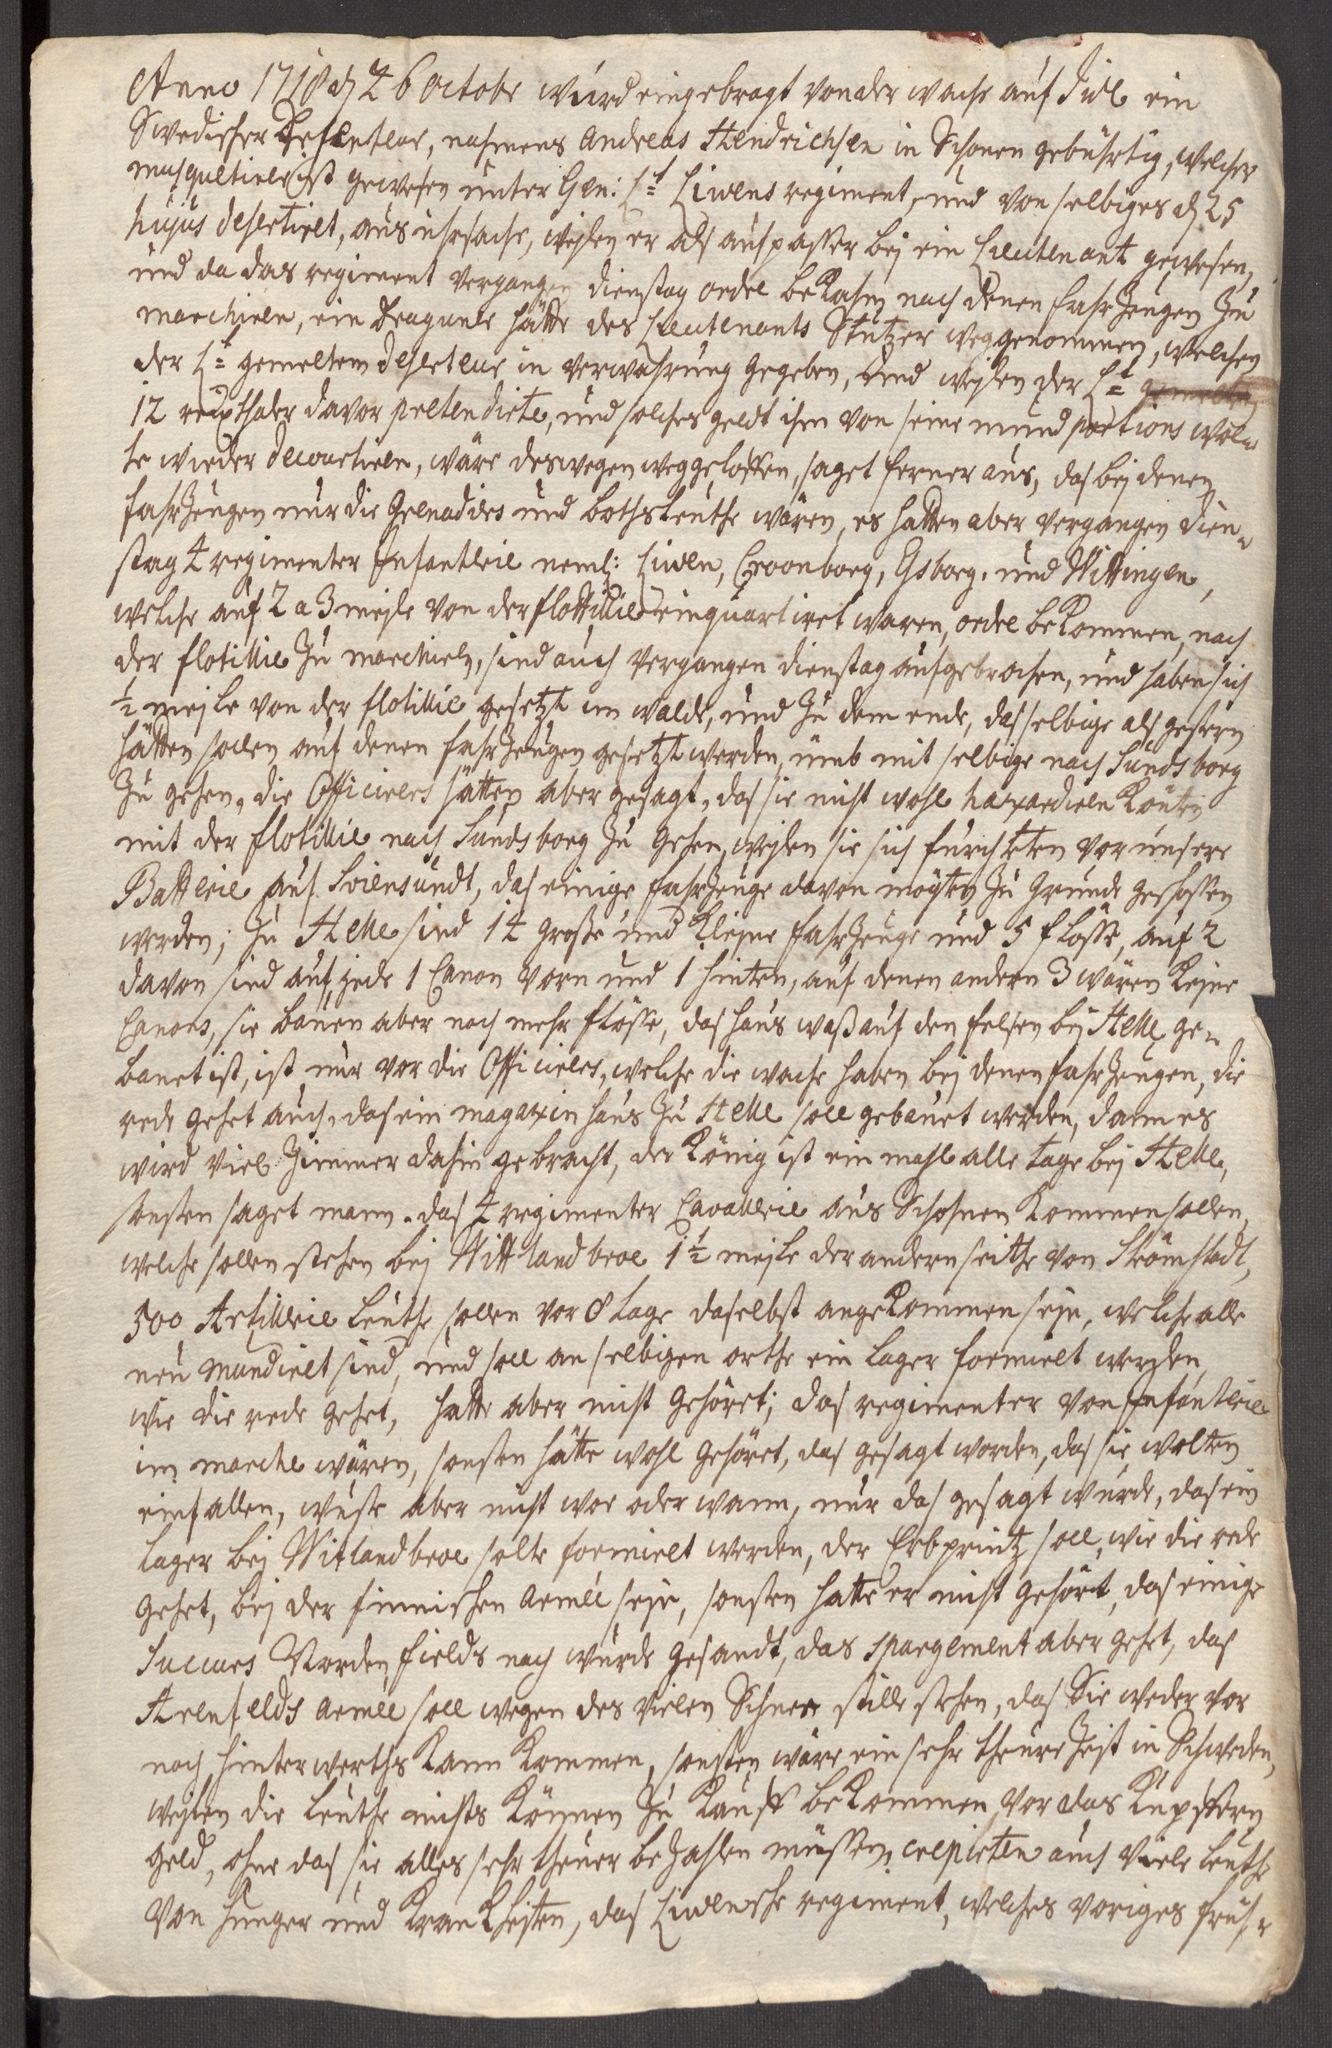 Anno 1718 d 26 octobr wurd eingebragt von der wache auf Siil ein
Swedischer Deserteur, nahmens Andreas Hendrichsen in Schonen gebührtig, welcher
musquetierer ist gewesen unter Gen: Lt Liwens regiment, und von selbiges d 25
hujus desertirt, aus uhrsache, weilen er als aufpasser bej ein Lieutenant gewesen,
und da das regiment vergangen dienstag ordre bekahm nach denen fahrzeugen zu
marchiren, ein Draguner hätte des Lieutenants Stutzer weggenommen, welchen
der Lt gemeltem deserteur in verwahrung gegeben, und weilen der Lt
12 reixthaler davor pretendirte, und solches geldt ihm von seine mund portions wol-
te wieder decourtiren, wäre deswegen weggeloffen, saget ferner aus, das bej denen
fahrzeugen nur die Grenadirs und bothsleuthe wären, es hatten aber vergangen dien-
stag 4 regimenter Infanterie neml: Liwen, Croonborg, Elsborg. und Wittingen,
welche auf 2 a 3 mejle von der flottillie einquartiret waren, ordre bekommen, nach
der flotillie zu marchiern, sind auch vergangen dienstag aufgebrochen, und haben sich
½ mejle von der flotillie gesetzt im walde, und zu dem ende, das selbige als gestern
hätten sollen auf denen fahrzeugen gesetzt werden, umb mit selbige nach Sundsborg
zu gehen. die Officirers hätten aber gesagt, das sie nicht wohl hazardiren könten
mit der flotillie nach Sundsborg zu gehen, weilen sie sich furchteten vor unsere
Batterie auf Sviensundt, das einige fahrzeuge davon mögten zu grunde geschossen
werden; Zu Helle sind 14 große und kleine fahrzeuge und 5 flösse, auf 2
davon sind auf jede 1 Canon vorn und 1 hinten, auf denen andern 3 wären keine
Canons, sie bauen aber noch mehr flösse, das haus waß auf den felsen bej Helle ge-
bauet ist, ist nur vor die Officirers, welche die wache haben bej denen fahrzeugen, die
rede gehet auch, das ein magazin haus zu Helle soll gebauet werden, dann es
wird viel Zimmer dahin gebracht, der König ist ein mahl alle tage bej Helle,
sonsten saget mann, das 4 regimenter Cavallerie aus Schohnen kommen sollen,
welche sollen stehen bej Wittlandbroe 1½ mejle der andern seithe von Strömstadt,
500 Artillerie leuthe sollen vor 8 tage daselbst angekommen sejn, welche alle
neu mundirt sind, und soll an selbigen orthe ein lager formirt werden,
wie die rede gehet, hatte aber nicht gehöret; das regimenter von Infanterie
im marche wären, sonsten hätte wohl gehöret, das gesagt worden, das sie wolten
einfallen, wuste aber nicht woe oder wann, nur das gesagt wurde, das ein
lager bej Witlandbroe solte formirt werden, der Erbprintz soll, wie die rede
gehet, bej der finnischen armée sejn, sonsten hatte er nicht gehört, das einige
Succurs Norden fields nach würde gesandt, das spargement aber gehet, das
Arenfelds armée soll wegen des vielen Schnee stille stehen, das Sie weder vor
noch hinterwerths kann kommen, sonsten wäre ein sehr theure Zeit in Schweden,
weilen die leuthe nichts können zu kauff bekommen vor das kupffern
geld, ohne das sie alles sehr theuer bezahlen müssen, crepirten auch viele leuthe
von hunger und krankheiten, das Liwensche regiment, welches voriges früh-